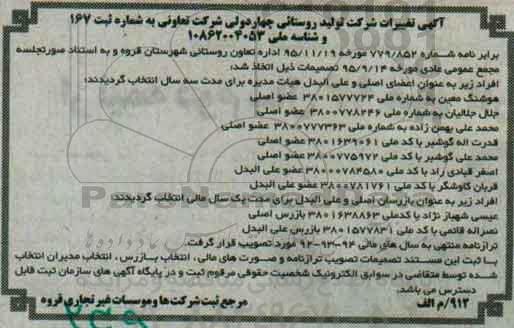 آگهی تغییرات شرکت تولید روستائی چهاردولی شرکت تعاونی به شماره ثبت ۱۶۷
و شناسه ملی ۱۰۸۶۲۰۰۴۰۵۳
برابر نامه شماره ۷۷۹/۸۵۲ مورخه ۹۵/۱۱/۱۹ اداره تعاون روستائی شهرستان قروه و به استناد صورتجلسه
مجمع عمومی عادی مورخه ۹۵/۹/۱۴ تصمیمات ذیل اتخاذ شد:
افراد زیر به عنوان اعضای اصلی و علی البدل هیات مدیره برای مدت سه سال انتخاب گردیدند:
هوشنگ معین به شماره ملی ۳۸۰۱۵۷۷۷۲۴ عضو اصلی
جلال جلالیان به شماره ملی ۳۸۰۰۷۷۸۲۴۶ عضو اصلی
محمد علی بهمن زاده به شماره ملی ۳۸۰۰۷۷۷۳۶۳ عضو اصلی
قدرت اله گوشبر با کد ملی ۳۸۰۱۶۳۹۰۶۱ عضو اصلی
محمد علی گوشبر با کد ملی ۳۸۰۰۷۷۵۹۷۲ عضو اصلی
اصغر قیادی راد با کد ملی ۳۸۰۰۰۷۸۴۵۸۰ عضو علی البدل
قربان کاوشگر با کد ملی ۳۸۰۰۷۸۱۷۶۱ عضو علی البدل
افراد زیر به عنوان بازرسان اصلی و علی البدل برای مدت یک سال مالی انتخاب گردیدند
عیسی شهباز نژاد با کدملی ۳۸۰۱۶۳۸۸۶۳ بازرس اصلی
نصراله قائمی با کد ملی ۳۸۰۱۵۷۷۸۳۱ بازرس علی البدل
ترازنامه منتهی به سال های مالی ۹۴-۹۳-۹۲ مورد تصویب قرار گرفت.
با ثبت این مستند تصمیمات تصویب ترازنامه و صورت های مالی، انتخاب بازرس، انتخاب مدیران انتخاب
شده توسط متقاضی در سوابق الکترونیک شخصیت حقوقی مرقوم ثبت و در پایگاه آگهی های سازمان ثبت قابل
دسترس می باشد.
۹۱۲/م الف
مرجع ثبت شرکت ها و موسسات غیر تجاری قروه